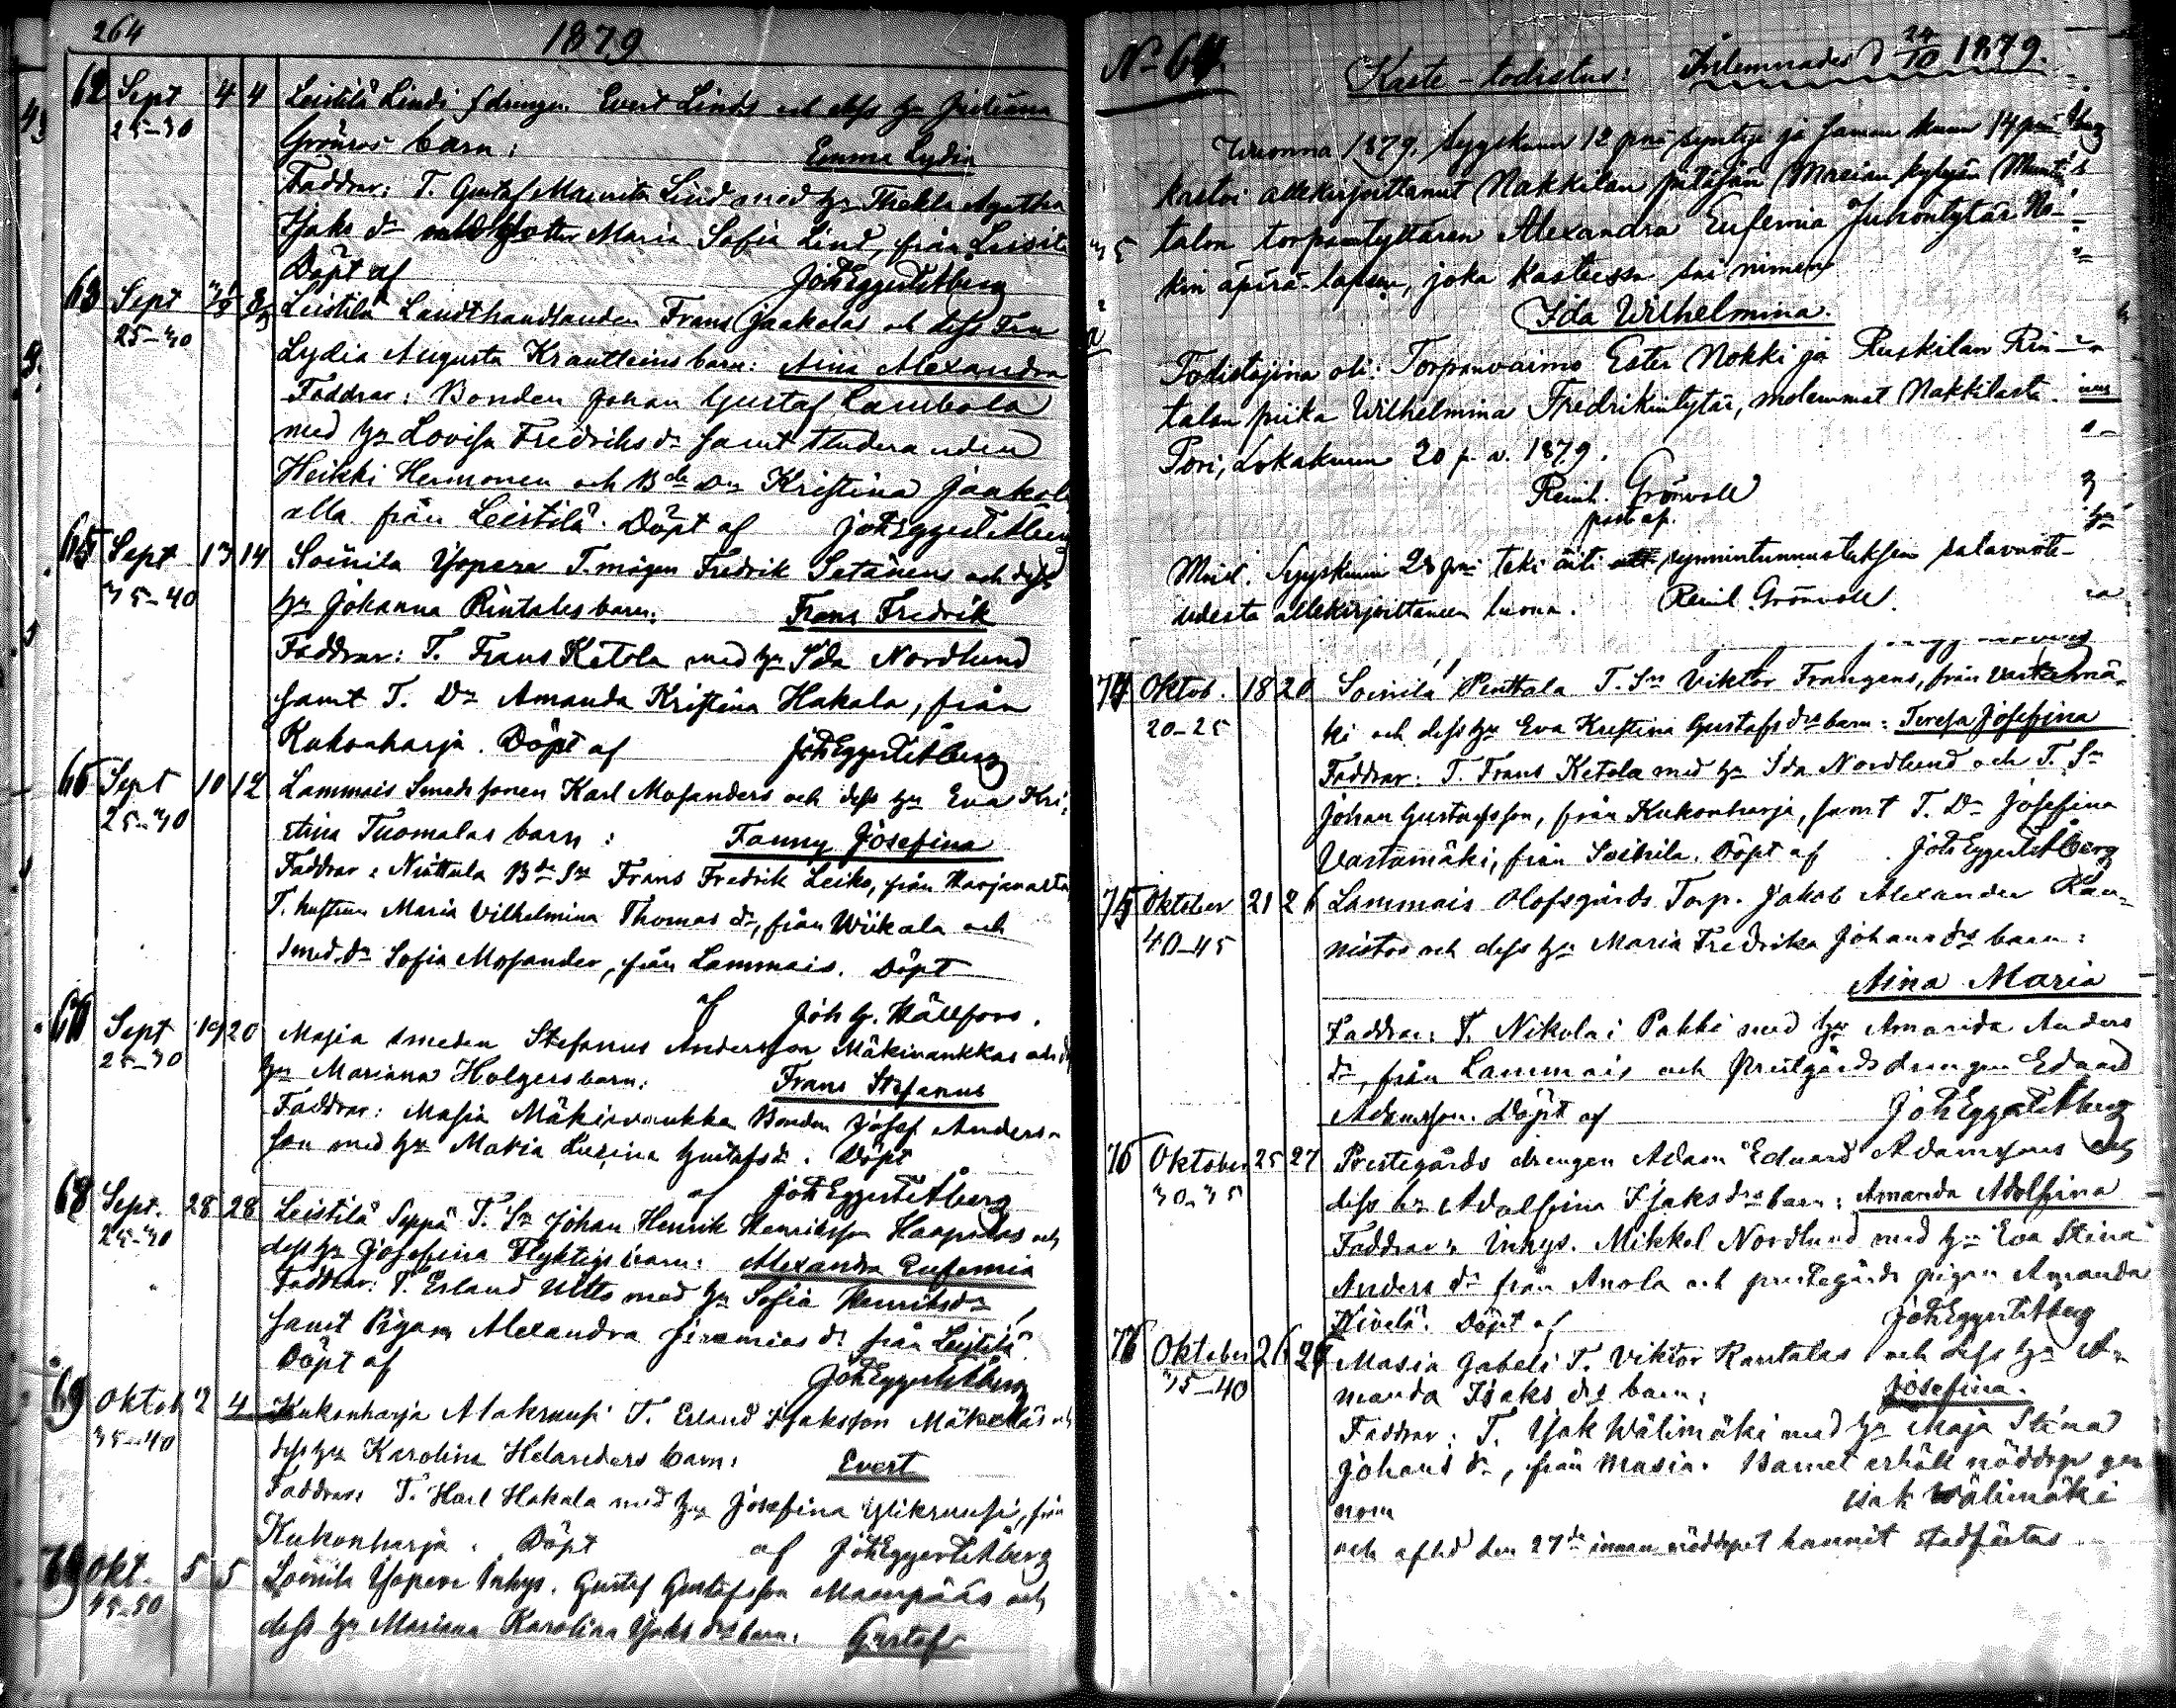 264
1879
62 Sept 4 4 Leistilä Lindi drengen Evert Linds och dess h:u
25-30 Grönroos barn: Emma Lydia
Faddrar: T. Gustaf Lind med h:u Thekla Agatha
Isaks d:r Maria Sofia Lind, från Leistilä
Döpt af Joh Eggert Åberg
63 Sept Leistilä Landthandlanden Frans Jaakolas och dess Fru
25-30 Lydia Augusta barn: Aina Alexandra
Faddrar: Bonden Johan Gustaf Lambola
med h:u Lovisa Fredriks d:r samt Studeranden
Heikki Hermonen och B:de D:r Kristina Jaakola
alla från Leistilä. Döpt af Joh Eggert Åberg
65 Sept 13 14 Soinila Yopere T. mågen Fredrik Setänens och dess
35-40 h:u Johanna Rintalas barn: Frans Fredrik
Faddrar: T. Frans Ketola med h:u Ida Nordlund
samt T. D:r Amanda Kristina Hakala, från
Kukonharja. Döpt af Joh Eggert Åberg
66 Sept 10 12 Lammais Smeds sonen Karl Mosanders och dess h:u Eva Kri-
25-30 stina Tuomalas barn: Fanny Josefina
Faddrar: Niuttula B:de S:n Frans Fredrik Leiko, från
T. hustrun Maria Vilhelmina Thomas d:r, från Wiikala och
smed. d:r Sofia Mosander, från Lammais. Döpt
af Joh G. Hällfors.
Sept 19 20 Masia smeden Stefanus Andersson Mäkivankkas och
25-30 h:u Mariana Holgers barn: Frans Stefanus
Faddrar: Masia Mäkivankka Bonden Josef Anders-
son med h:u Maria Lusina Gustafs d:r. Döpt
af Joh Eggert Åberg
68 Sept. 28 28 Leistilä Seppä T. S:n Johan Henrik Henriksson Haapalas och
25-30 dess h:u Josefina Flyktigs barn: Alexandra Eufemia
Faddrar: T. Erland Utto med h:u Sofia Henriks d:r
samt Pigan Alexandra Jeremias d:r från Leistilä.
Döpt af Joh Eggert Åberg
69 Oktob 2 4 Kukonharja Alakruusi T. Erland Isaksson Mäkeläs och
35-40 dess h:u Karolina Helanders barn: Evert
Faddrar: T. Karl Hakala med h:u Josefina Ylikruusi, från
Kukonharja. Döpt af Joh Eggert Åberg
Okt. 5 5 Soinila Yopere Inhys. Gustaf Gustafsson Maanpääs och
45-50 dess h:u Mariana Karolina Isaks d:rs barn: Gustaf
No 64. Kaste-todistus: Inlemnades d 24/10 1879.
Wuonna 1879. Syyskuun 12 pnä syntyi ja saman kuun 14 pnä
kastoi allekirjoittanut Nakkilan pitäjän Masian kylän
talon torpantyttären Alexandra Eufemia Juhontytär No-
kin äpärä-lapsen, joka kasteessa sai nimen
Ida Wilhelmina.
Todistajina oli: Torpanvaimo Ester Nokki ja Ruskilan
talon piika Wilhelmina Fredrikintytär, molemmat Nakkilasta.
Pori, Lokakuun 20 p. v. 1879.
Reinh. Grönvall
past. ap.
Muist. Syyskuun 28 pnä teki äiti synnintunnustuksen salavuote-
udesta allekirjoittaneen luona. Reinh. Grönvall.
74 Oktob. 18 20 Soinila Penttala T. S:n Viktor Frangens, från Vastamä-
20-25 ki och dess h:u Eva Kristina Gustafs d:rs barn: Teresa Josefina
Faddrar: T. Frans Ketola med h:u Ida Nordlund och T. S:n
Johan Gustafsson, från Kukonharja, samt T. D:r Josefina
Vastamäki, från Soinila. Döpt af Joh Eggert Åberg
75 Oktober 21 26 Lammais Olofsgårds Torp. Jakob Alexander Kau-
40-45 nistos och dess h:u Maria Fredrika Johans d:rs barn:
Aina Maria
Faddrar: T. Nikolai Pakki med h:u Amanda Anders
d:r, från Lammais och Prestgårds drengen Eduard
Adamsson. Döpt af Joh Eggert Åberg
76 Oktober 25 27 Prestegårds drengen Adam Eduard Adamssons och
30-35 dess h:u Adolfina Isaks d:rs barn: Amanda Adolfina
Faddrar: Inhys. Mikkel Nordlund med h:u Eva Stina
Anders d:r från Anola och prestegårds pigan Amanda
Kivelä. Döpt af Joh Eggert Åberg
Oktober 26 Masia Jabeli T. Viktor Rantalas och dess h:u A-
35-40 manda Isaks d:rs barn: Josefina.
Faddrar: T. Isak Wälimäki med h:u Maja Stina
Johans d:r, från Masia. Barnet erhöll nöddop ge-
nom Isak Wälimäki
och afled den 27:de innan nöddopet hunnit stadfästas.